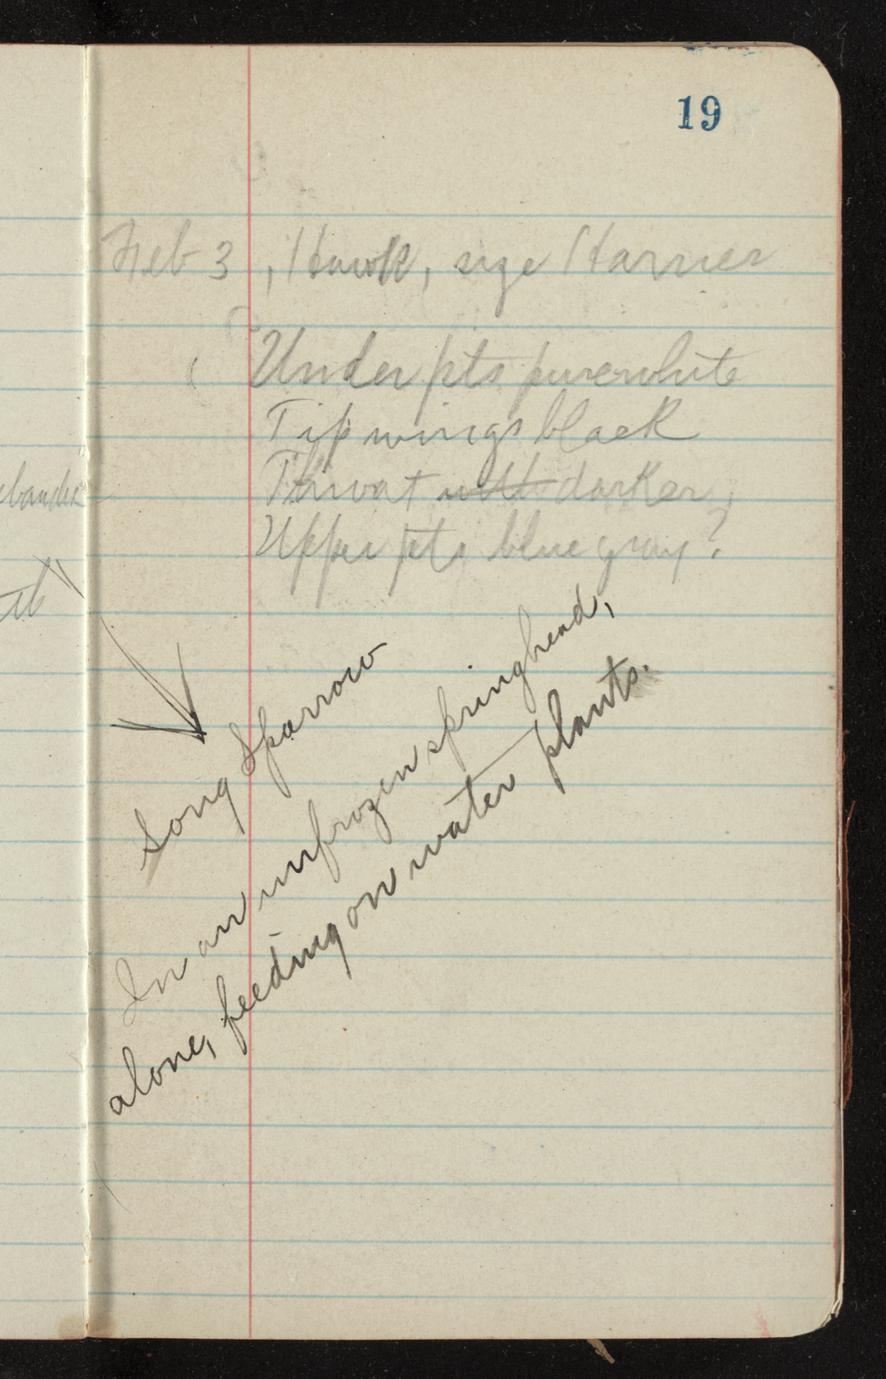 19
Feb 3, Hawk, size Harrier
Under pts pure white
Tip wings black
Throat with darker,
Upper pts blue gray?
Song Sparrow
In an unfrozen springhead,
alone, feeding on water plants.